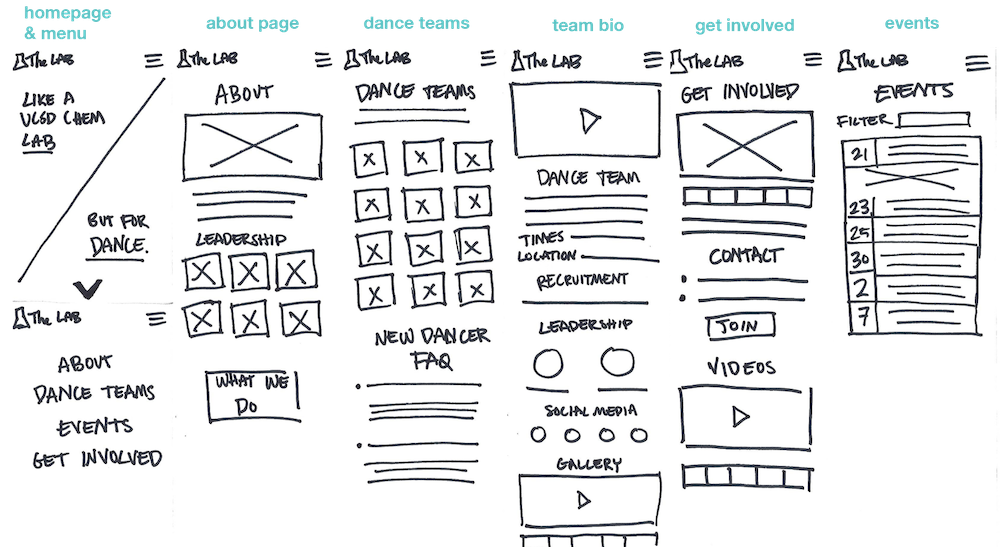 homepage
& menu
The LAB
LIKE A
UCSD CHEM
LAB
BUT FOR
DANCE.
The LAB
ABOUT
DANCE TEAMS
EVENTS
GET INVOLVED
about page
The LAB
ABOUT
LEADERSHIP
WHAT WE
DO
dance teams
The LAB
DANCE TEAMS
NEW DANCER
FAQ
team bio
The LAB
DANCE TEAM
TIMES
LOCATION
RECRUITMENT
LEADERSHIP
SOCIAL MEDIA
GALLERY
get involved
The LAB
GET INVOLVED
CONTACT
JOIN
VIDEOS
events
The LAB
EVENTS
FILTER
21
23
25
30
2
7